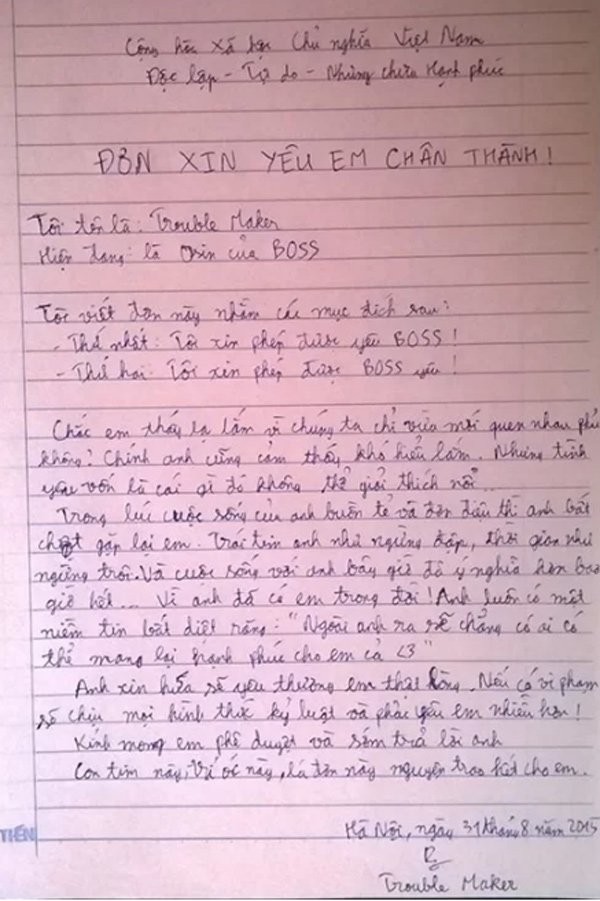 Cộng hòa xã hội Chủ nghĩa Việt Nam
Độc lập - Tự do - Nhưng chưa Hạnh phúc
ĐƠN XIN YÊU EM CHÂN THÀNH!
Tôi tên là: Trouble Maker
Hiện đang: là Osin của BOSS
Tôi viết đơn này nhằm các mục đích sau:
- Thứ nhất: Tôi xin phép được yêu BOSS!
- Thứ hai: Tôi xin phép được BOSS yêu!
Chắc em thấy lạ lắm vì chúng ta chỉ vừa mới quen nhau phải
không? Chính anh cũng cảm thấy khó hiểu lắm. Nhưng tình
yêu vốn là cái gì đó không thể giải thích nổi...
Trong lúc cuộc sống của anh buồn tẻ và đơn điệu thì anh bất
chợt gặp lại em. Trái tim anh như ngừng đập, thời gian như
ngừng trôi. Và cuộc sống với anh bây giờ đã ý nghĩa hơn bao
giờ hết... Vì anh đã có em trong đời! Anh luôn có một
niềm tin bất diệt rằng: "Ngoài anh ra sẽ chẳng có ai có
thể mang lại hạnh phúc cho em cả <3"
Anh xin hứa sẽ yêu thương em thật lòng. Nếu có vi phạm
sẽ chịu mọi hình thức kỷ luật và phải yêu em nhiều hơn!
Kính mong em phê duyệt và sớm trả lời anh
Con tim này, trí óc này, lá đơn này nguyện trao hết cho em.
Hà Nội, ngày 31 tháng 8 năm 2015
Trouble Maker
TIẾN